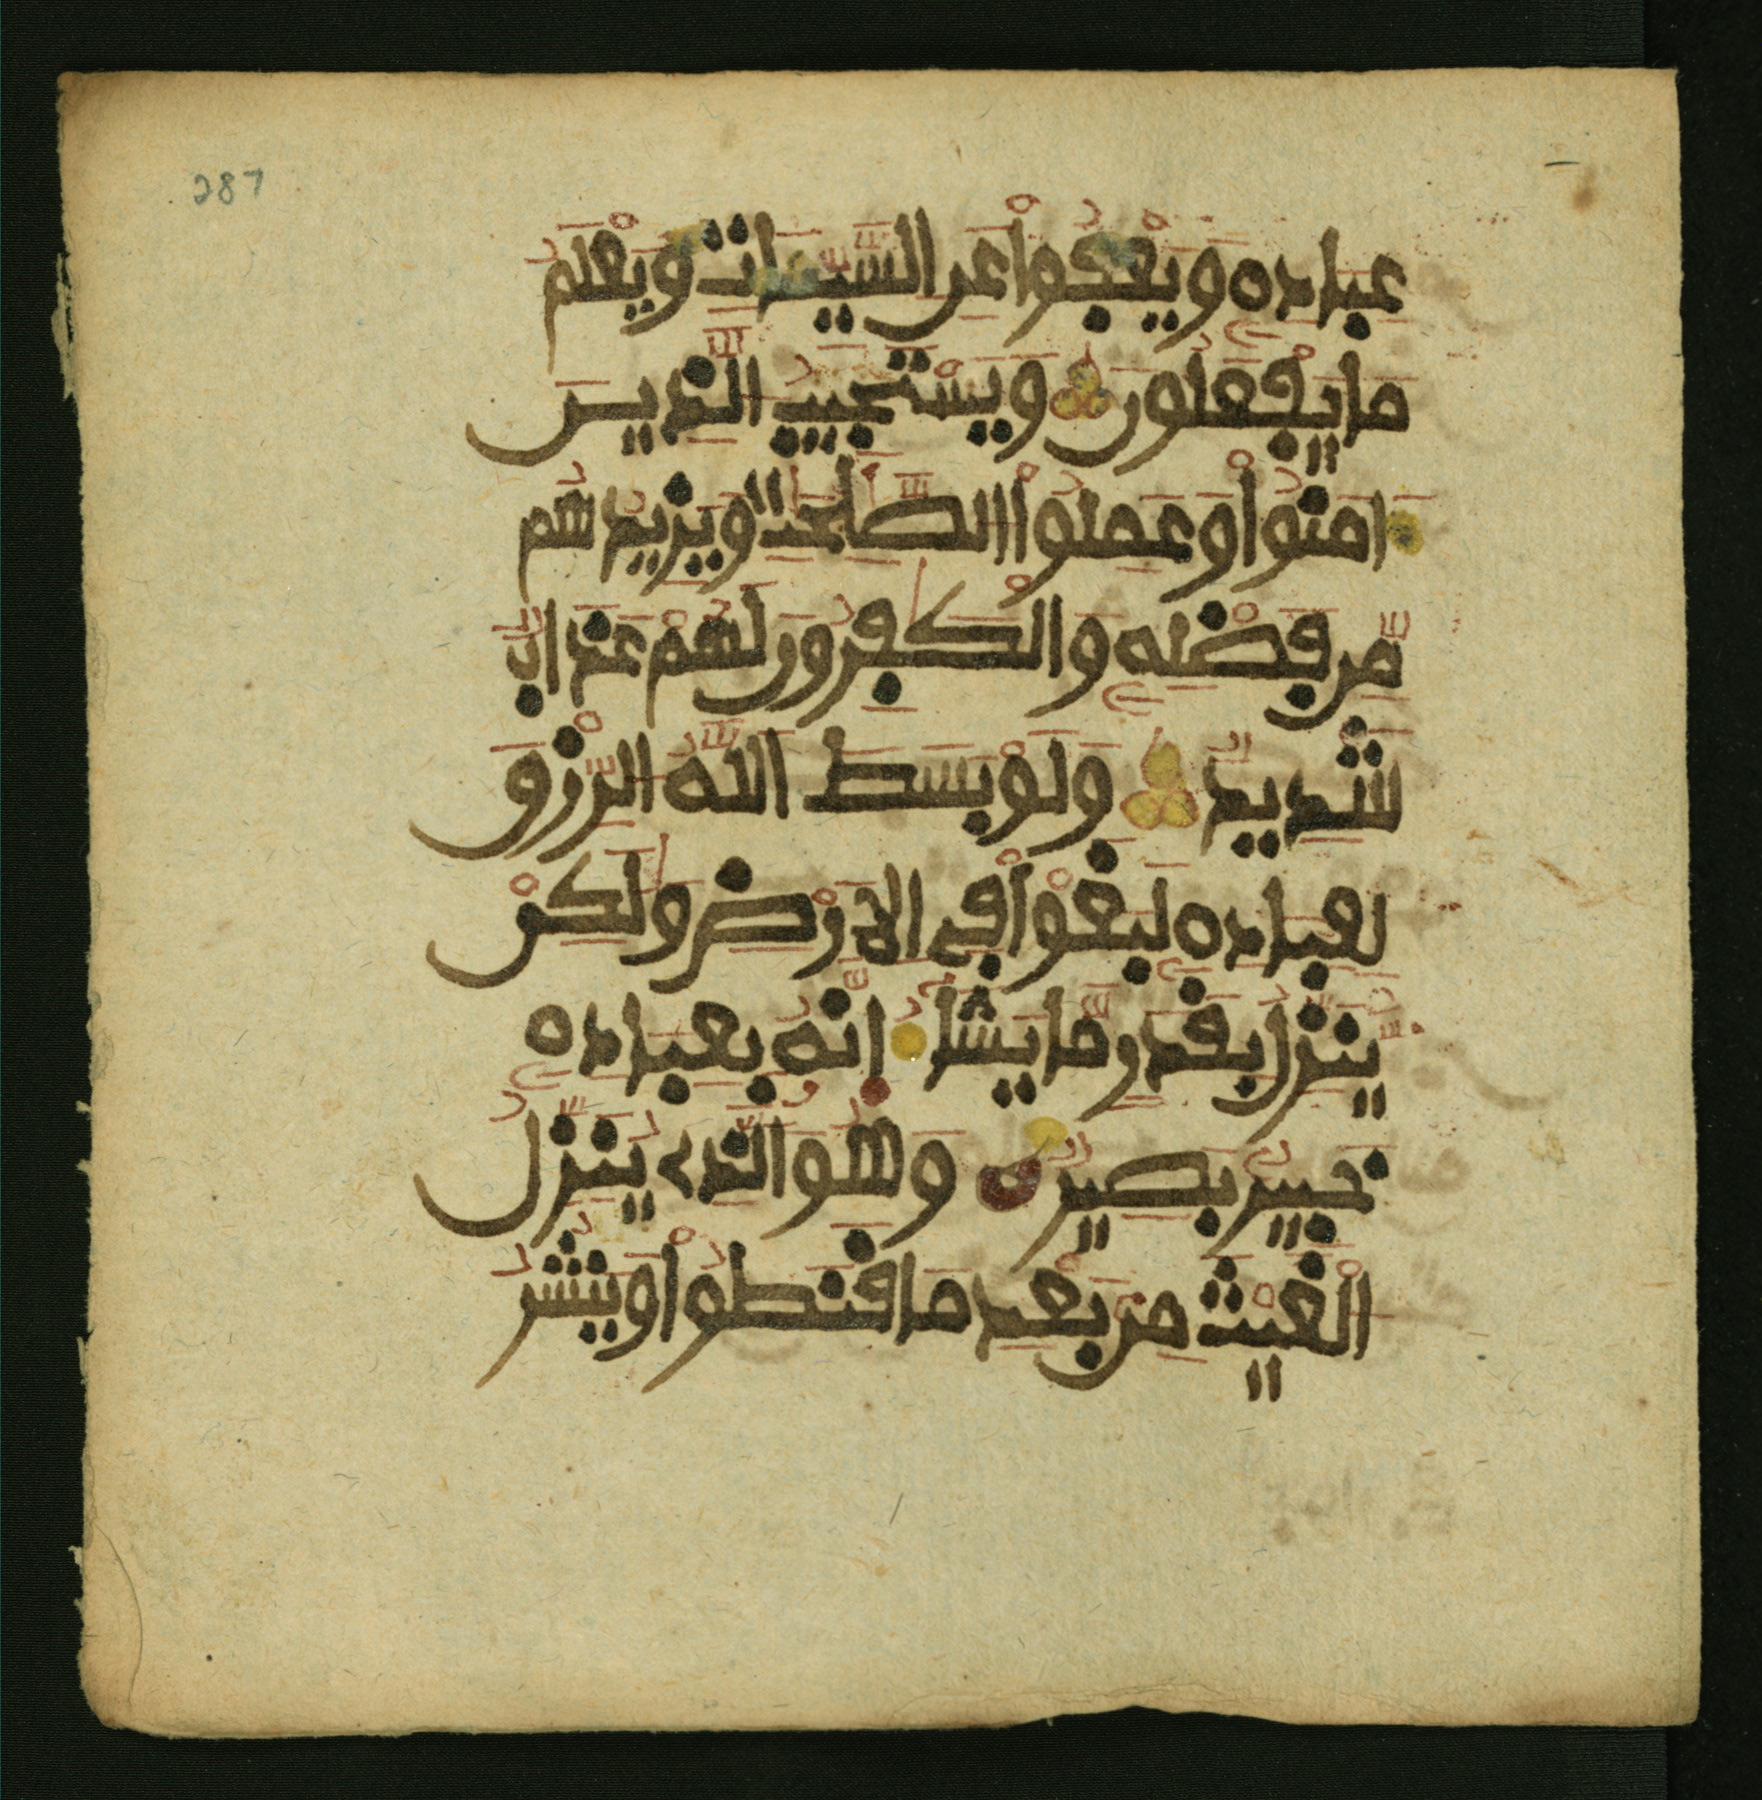 287
عباده ويعفوا عن السيئات ويعلم
ما يفعلون ويستجيب الذين
امنوا وعملوا الصلحت ويزيدهم
من فضله والكفرون لهم عذاب
شديد ولو بسط الله الرزق
لعباده لبغوا في الارض ولكن
ينزل بقدر ما يشا انه بعباده
خبير بصير وهو الذي ينزل
الغيث من بعد ما قنطوا وينشر